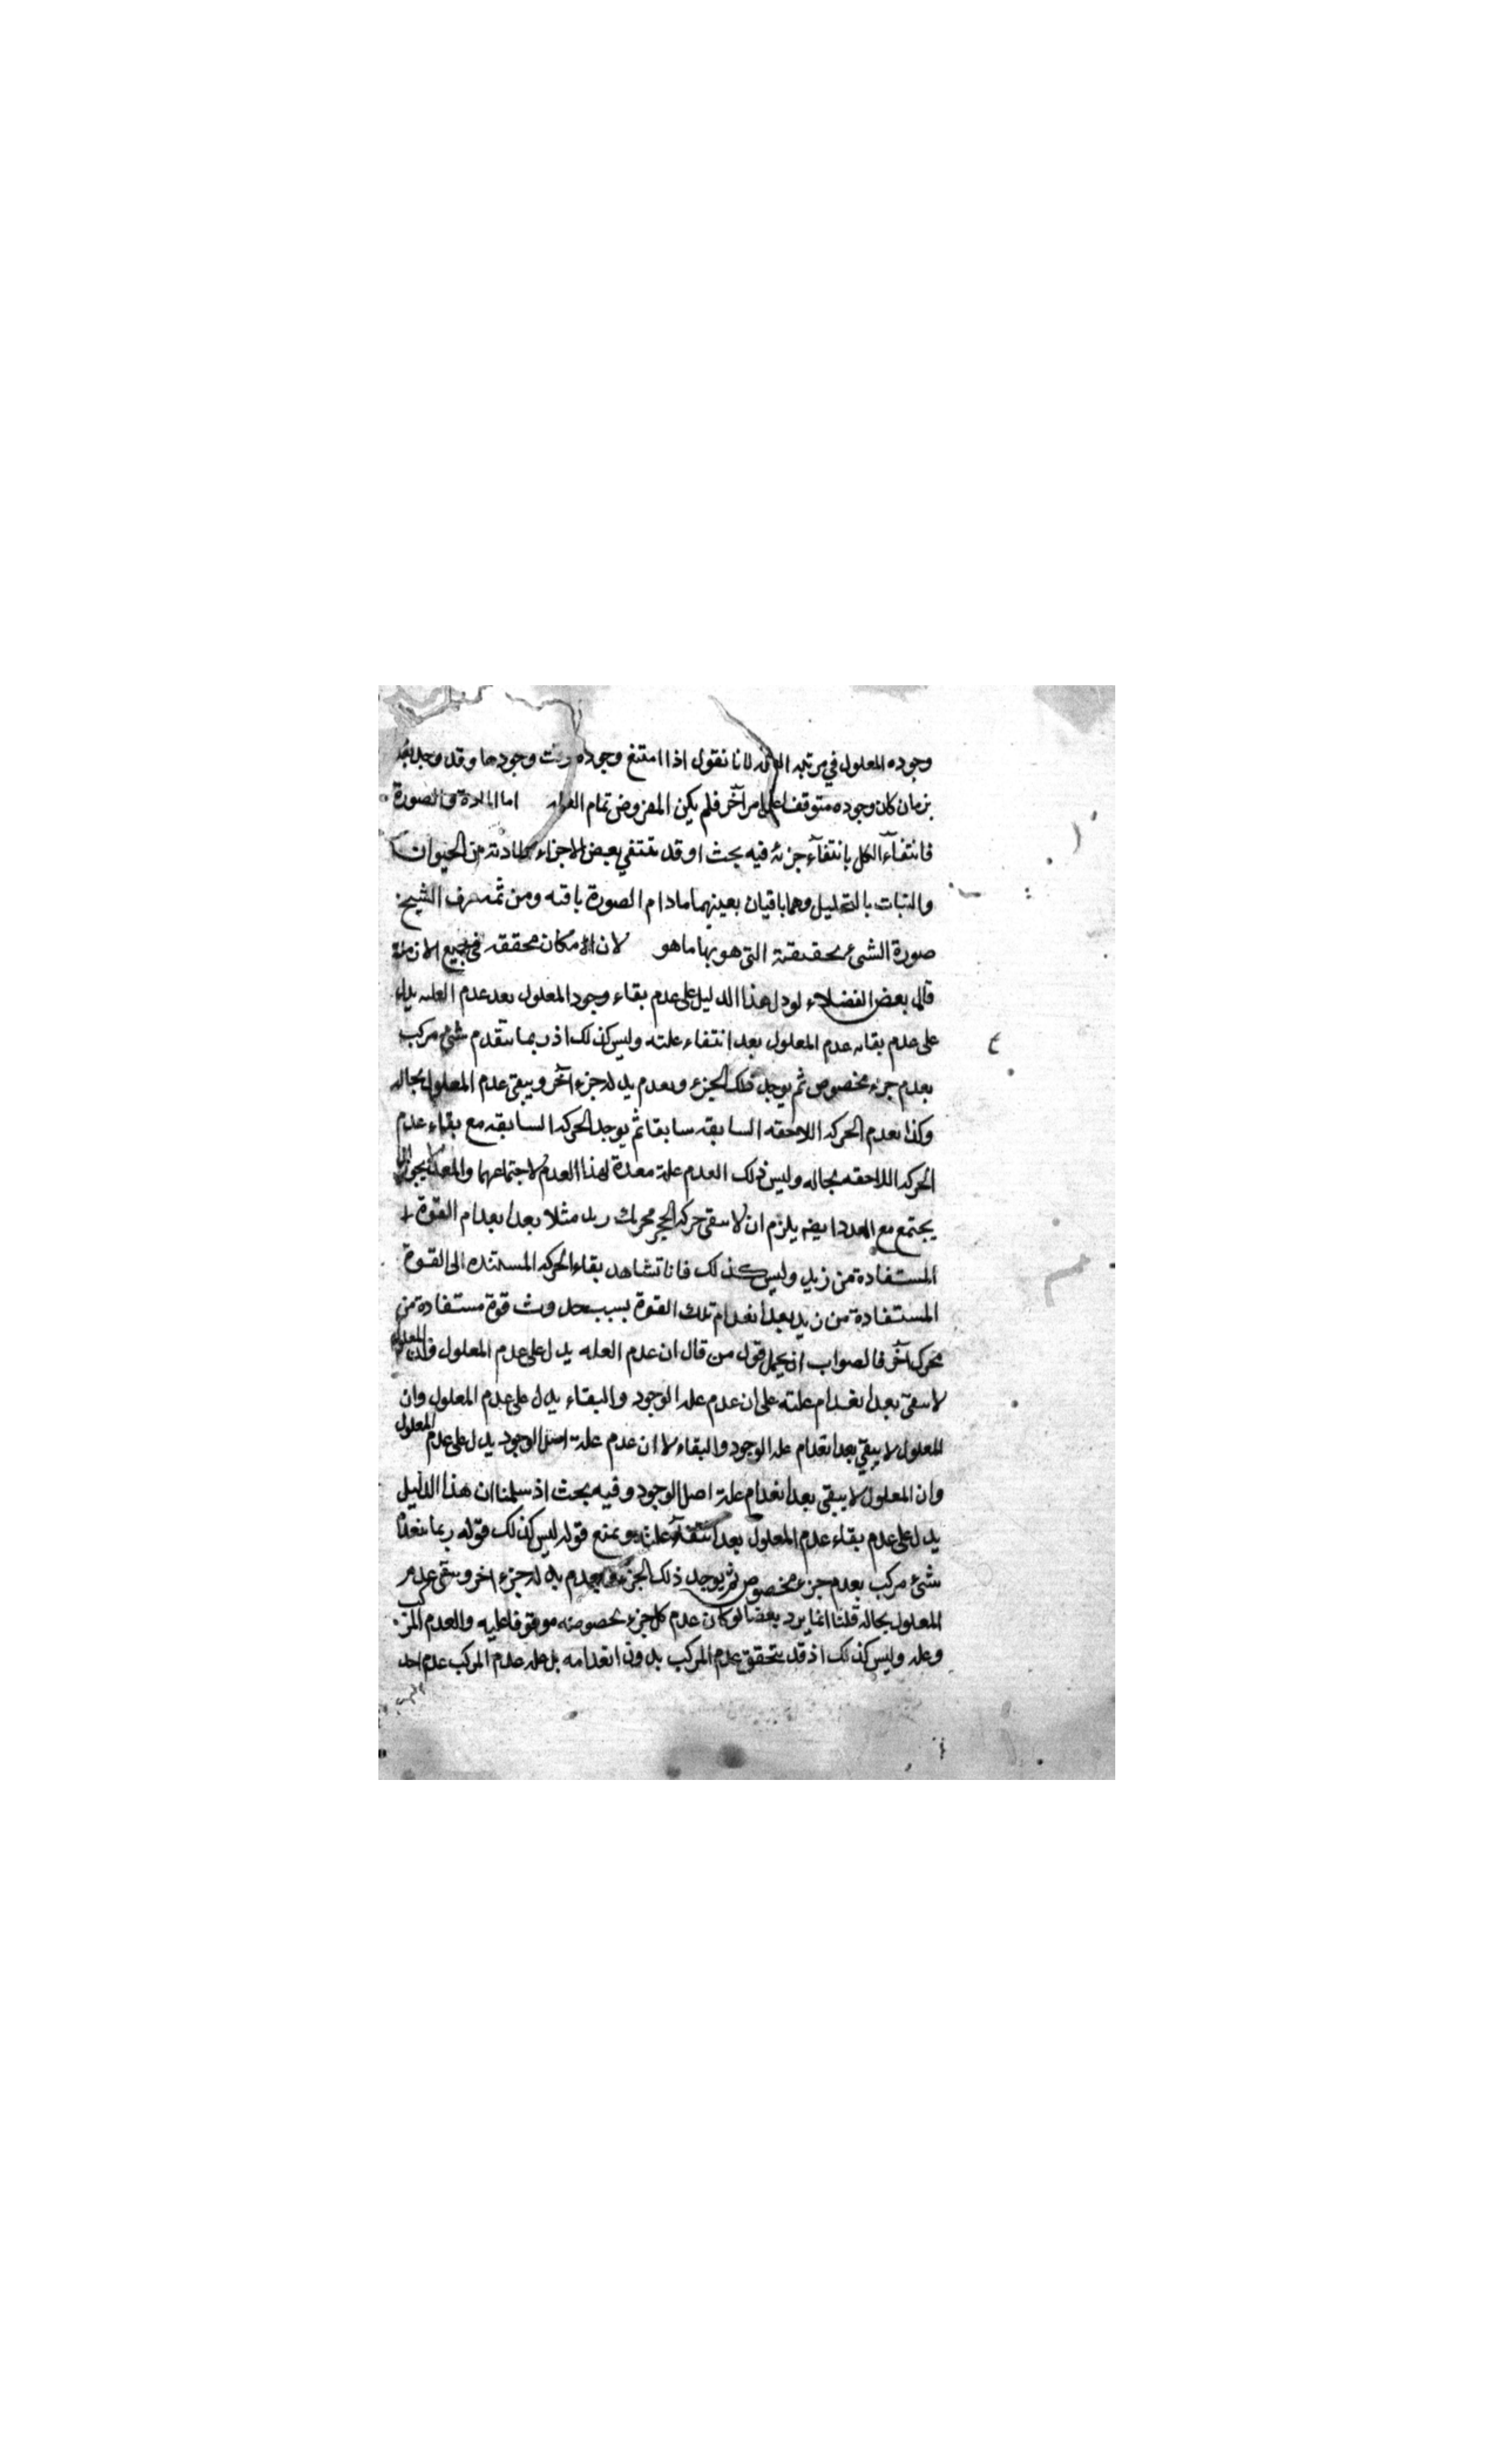 وجوده المعلول في مرتبه لانا نقول اذا امتنع وجوده وقت وجودها وقد وجد بعد
بزمان كان وجوده متوقفا على امر آخر فلم يكن المفروض تمام العله اما المادة والصورة
فانتفآء الكل بانتفآء جزئه فيه بحث اذ قد ينتفي بعض الاجزاء من الحيوان
والنبات بالتحليل وهما باقيان بعينهما مادام الصورة باقيه ومن ثمه عرف الشيخ
صورة الشئ بحقيقة التى هو بها ما هو لان الامكان محققه في جميع الازمنة
قال بعض الفضلاء لو دل هذا الدليل على عدم بقاء وجود المعلول بعد عدم العله يدل
على عدم بقاء عدم المعلول بعد انتفاء علته وليس كذلك اذ ربما ينعدم شئ مركب
بعدم جزء مخصوص ثم يوجد ذلك الجزء وبعدم بدله جزء آخر ويبقى عدم المعلول بحاله
وكذا بعدم الحركه اللاحقه السابقه سابقا ثم يوجد الحركه السابقه مع بقاء عدم
الحركه اللاحقه بحاله وليس ذلك العدم علة معدة لهذا العدم لاجتماعهما والمعد لا يجوز ان
يجتمع مع المعد ايضه يلزم ان لا يبقى حركه الحجر محرك زيد مثلا بعد انعدام القوة
المستفادة من زيد وليس كذلك فانا نشاهد بقاء الحركه المستنده الى القوة
المستفادة من زيد بعد انعدام تلك القوة بسبب حدوث قوة مستفادة من
محرك آخر فالصواب ان يحمل قول من قال ان عدم العله يدل على عدم المعلول وان المعلول
لا يبقى بعد انعدام علته على ان عدم عله الوجود والبقاء يدل على عدم المعلول وان
المعلول لا يبقي بعد انعدام عله الوجود والبقاء لا ان عدم علة اصل الوجود يدل على عدم المعلول
وان المعلول لا يبقى بعد انعدام علة اصل الوجود وفيه بحث اذ سلمنا ان هذا الدليل
يدل على عدم بقاء عدم المعلول بعد انتفآء علته ونمنع قوله ليس كذلك قوله ربما ينعدم
شئ مركب بعدم جزء مخصوص ثم يوجد ذلك الجزء وبعدم بدله جزء اخر ويبقى عدم
المعلول بحاله قلنا انما يرد بعضا لو كان عدم كل جزء بخصوصه موقوفا عليه والعدم المركب
وعله وليس كذلك اذ قد يتحقق عدم المركب بدون انعدامه بل عله عدم المركب عدم احد